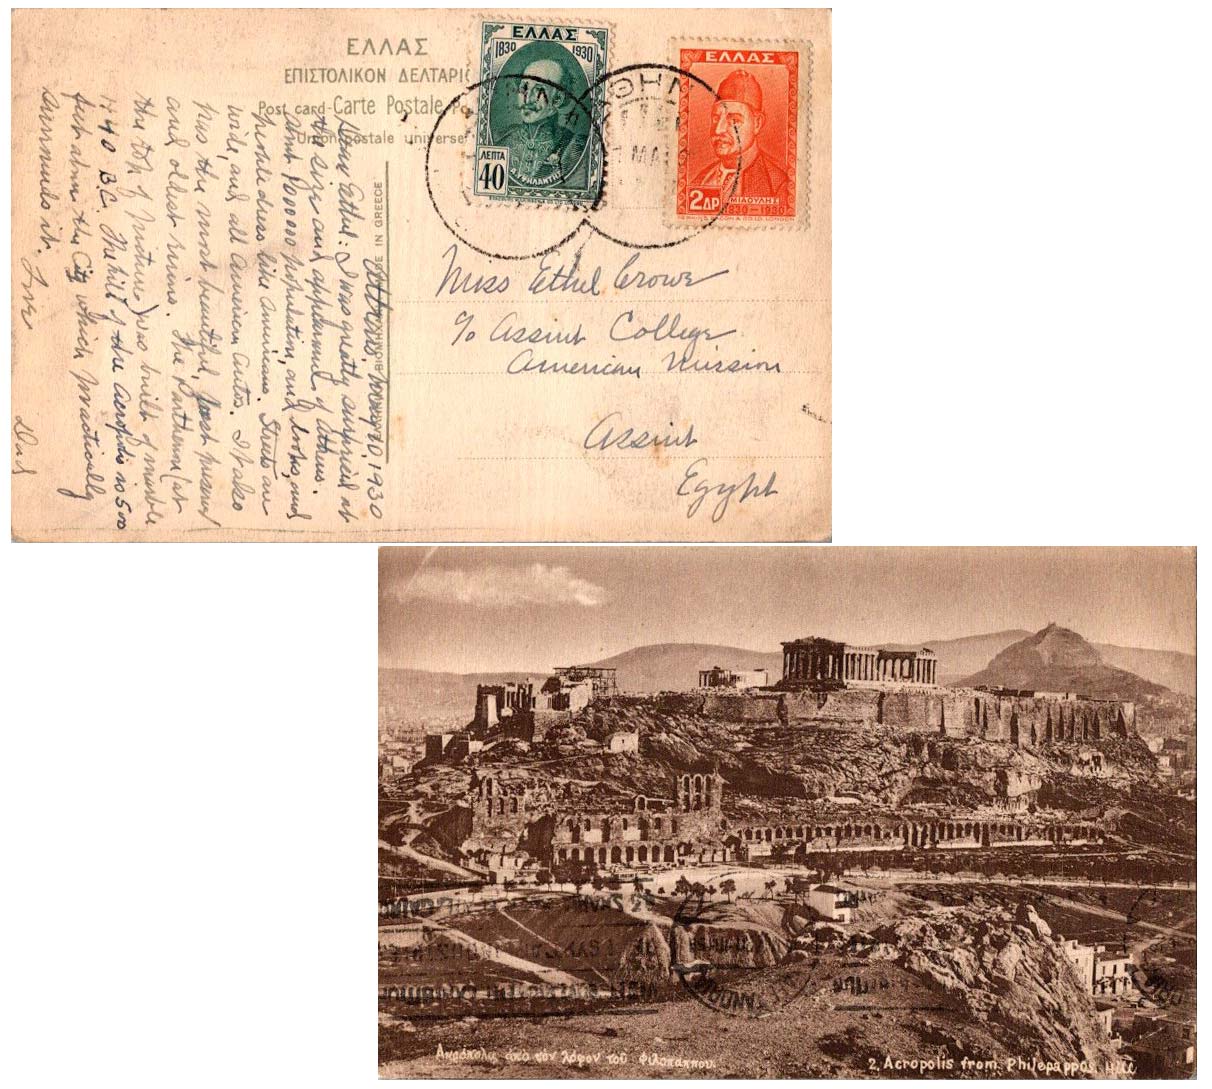 ΕΛΛΑΣ
ΕΠΙΣΤΟΛΙΚΟΝ ΔΕΛΤΑΡΙ
Post card - Carte Postale, Po
Union postale universe
ΕΛΛΑΣ
1830 1930
ΛΕΠΤΑ
40
Δ. ΥΨΗΛΑΝΤΗΣ
ΕΛΛΑΣ
2ΔΡ
ΜΙΑΟΥΛΗΣ
1830-1930
ΜΑΙ
DE IN GREECE
Athens, 1930
Dear Ethel: I was greatly surprised at
the size and appearance of Athens.
population, and looks, and
people dress like Americans. Streets are
wide, and all American autos. It also
has the most beautiful, best preserved
and oldest ruins. The Parthenon (at
the top of picture) was built of marble
440 B.C. The hill of the Acropolis is 500
feet above the City which practically
surrounds it. Love
Dad
Miss Ethel Crowe
c/o Assiut College
American Mission
Assiut
Egypt
Ακρόπολις από τον λόφον τού Φιλοπάππου.
2. Acropolis from Philepappos Hill